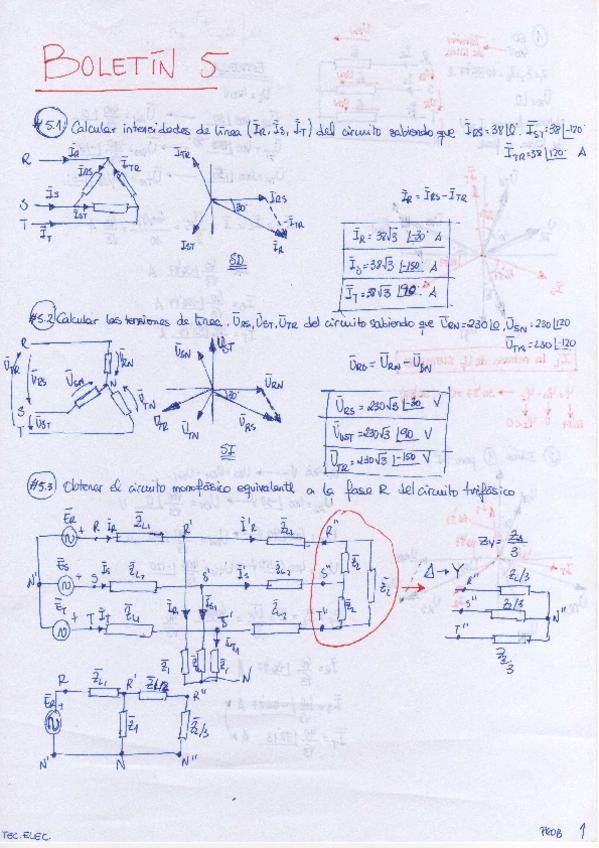 BOLETÍN 5
#5.1 Calcular intensidades de línea (ĪR, ĪS, ĪT) del circuito sabiendo que ĪRS=38∠0, ĪST=38∠-120
ĪTR=38∠120 A
R ĪR
ĪRS ĪTR
S ĪS
ĪST
T ĪT
ĪTR
ĪRS
30°
-ĪTR
ĪR
ĪST
SD
ĪR = ĪRS - ĪTR
ĪR = 38√3 ∠-30° A
ĪS = 38√3 ∠-150° A
ĪT = 38√3 ∠90° A
#5.2 Calcular las tensiones de línea, ŪRS, ŪST, ŪTR del circuito sabiendo que ŪRN=230∠0, ŪSN=230∠120
ŪTN=230∠-120
R
ŪTR ŪRS ŪRN
ŪSN N
S
T ŪST ŪTN
ŪSN ŪST
ŪRN
30°
ŪTR ŪTN ŪRS
SI
= ŪRN - ŪSN
ŪRS = 230√3 ∠-30 V
ŪST = 230√3 ∠90 V
ŪTR = 230√3 ∠-150 V
#5.3 Obtener el circuito monofásico equivalente a la fase R del circuito trifásico
ĒR + R ĪR Z̄L1 R' Ī'R Z̄L2 R''
ĒS + S ĪS Z̄L2 S' Z̄L2 S''
N'
ĒT + T ĪT Z̄L1 T' Z̄L2 T''
Z̄2 Z̄2 Z̄2
Δ → Y
Z̄1 Z̄1 Z̄1 N
R'' Z̄2/3
S'' Z̄2/3 N''
T''
R Z̄L1 R' R''
ĒR + Z̄1 Z̄2/3
N' N N''
TEC. ELEC. PROB 1